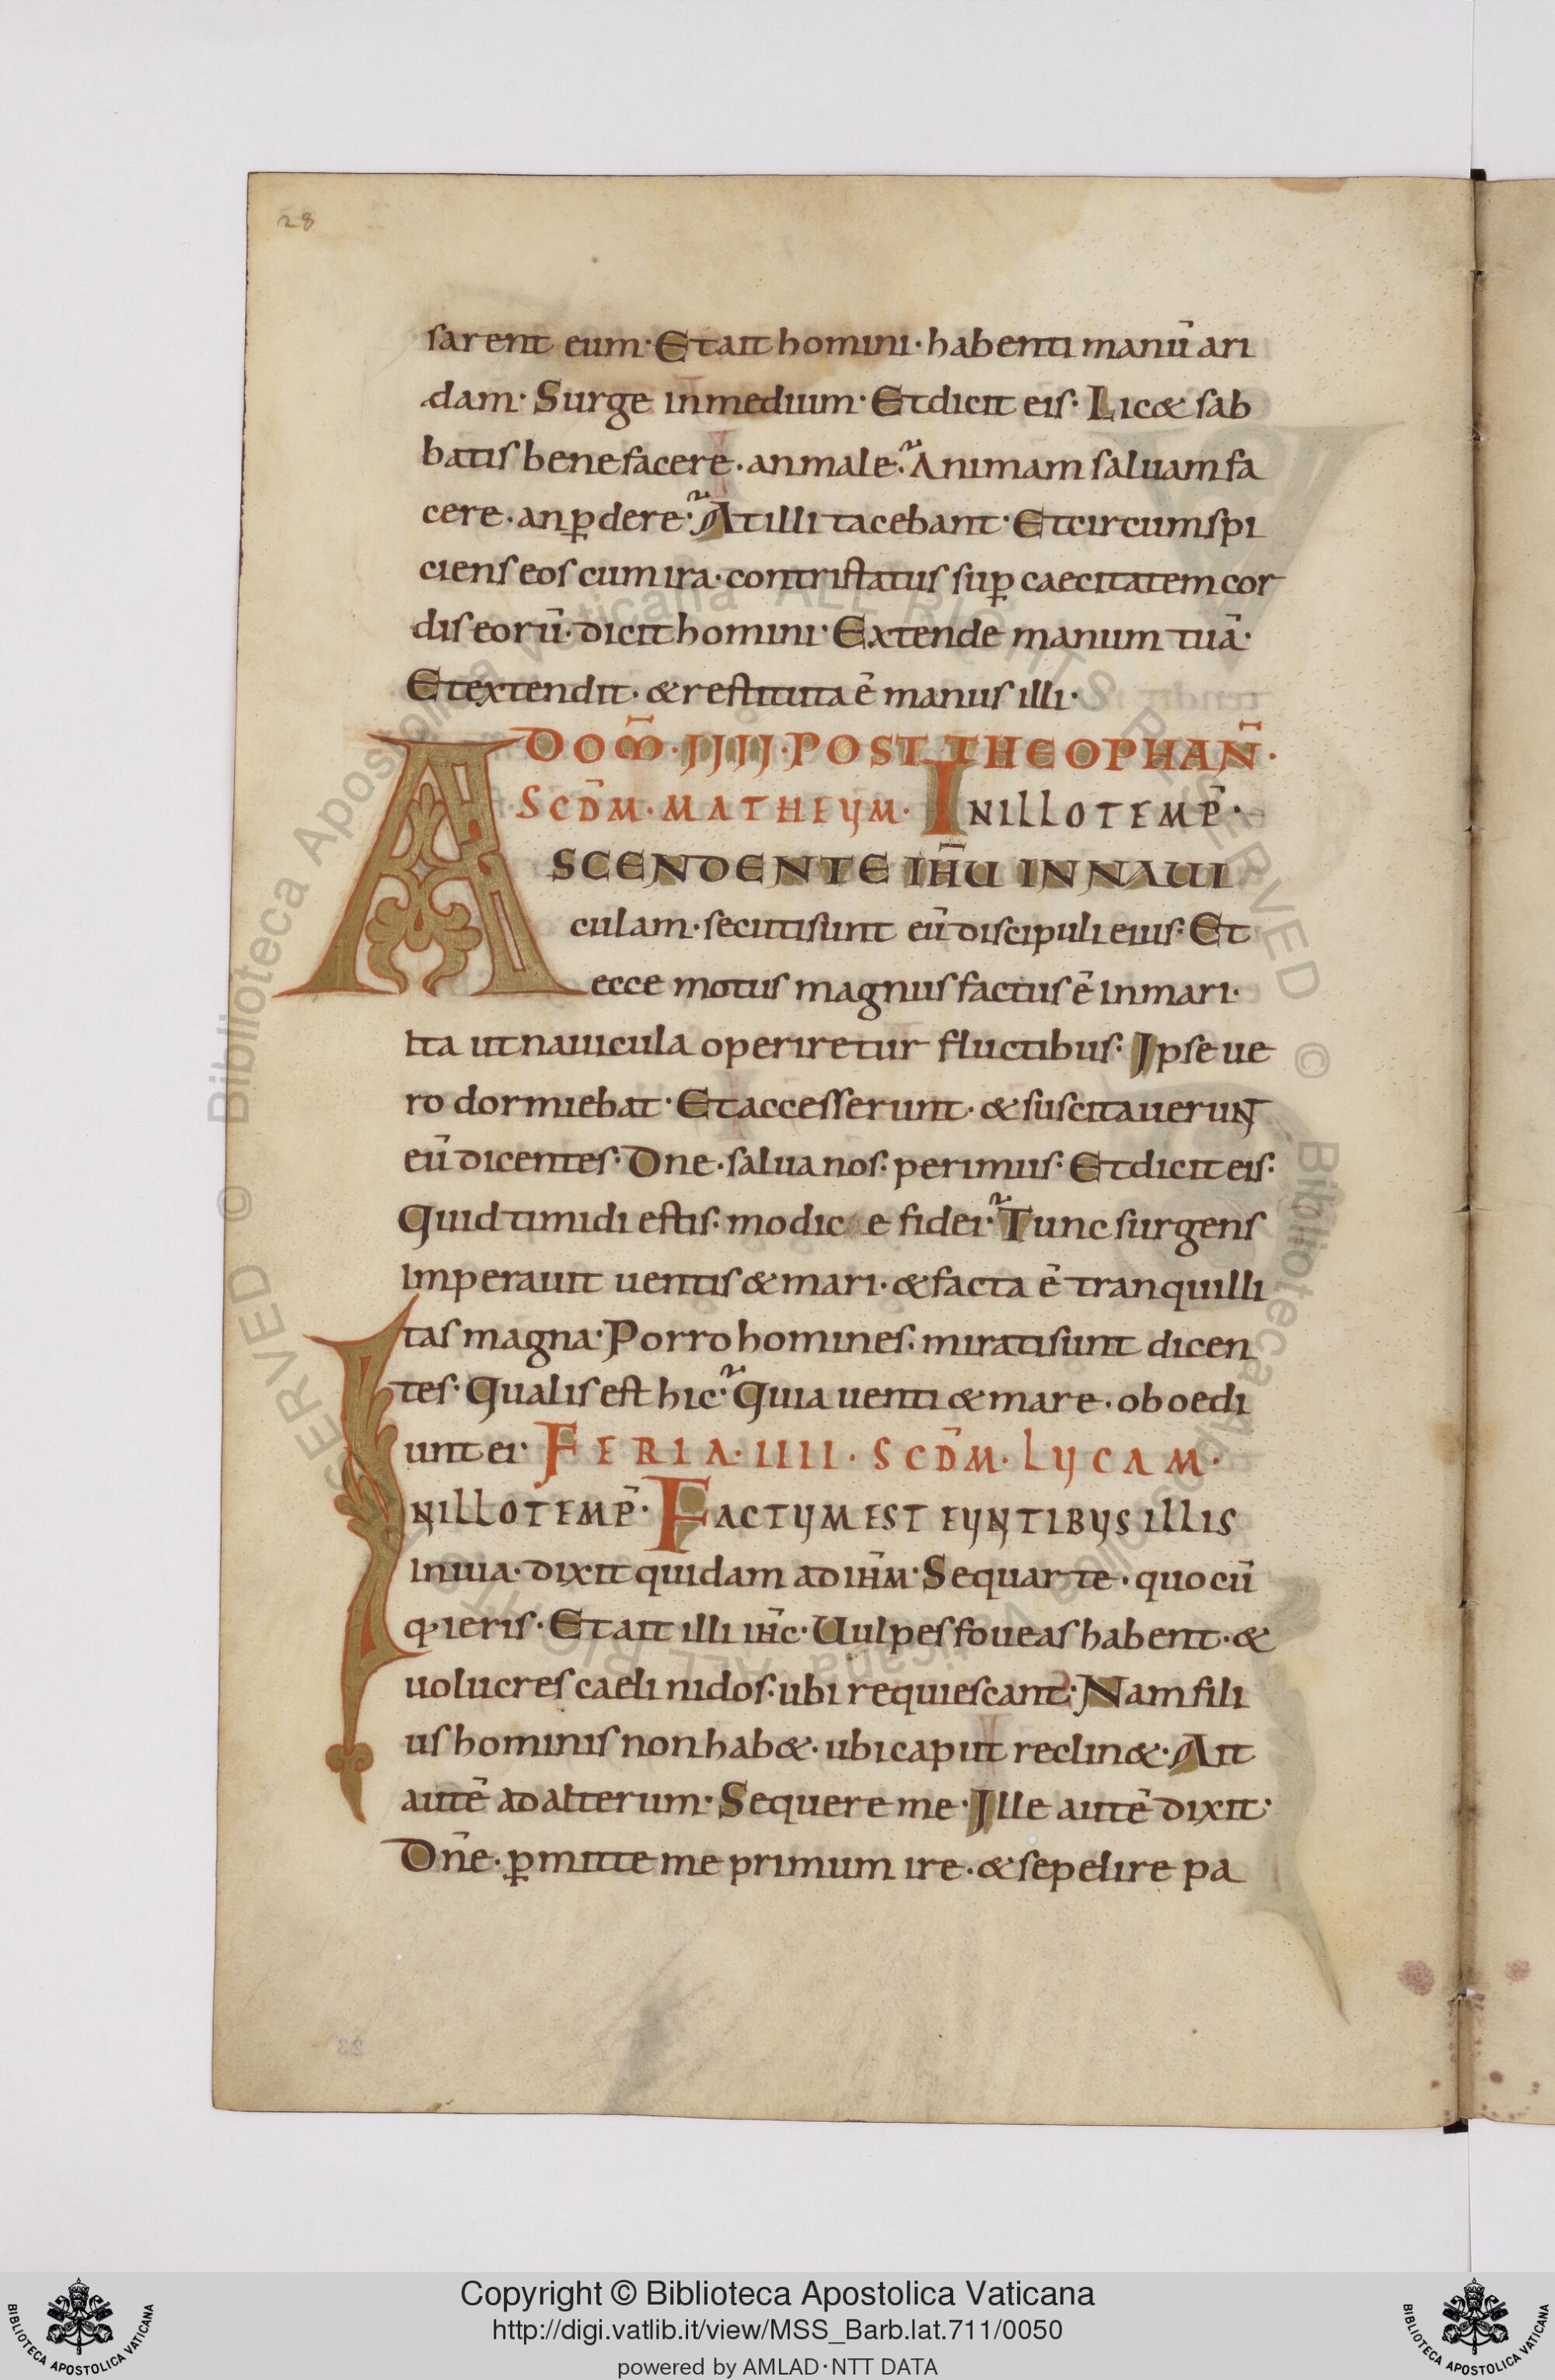 28
sarent eum· Et ait homini· habenti manū ari
dam· Surge in medium· Et dicit eis· Licet sab
batis bene facere· an male· Animam saluam fa
cere· an ꝑdere· At illi tacebant· Et circumspi
ciens eos cum ira· contristatus suꝑ caecitatem cor
dis eorū· dicit homini· Extende manum tuā·
Et extendit· & restituta ē manus illi·
DOM̄· IIII· POST THEOPHAN̄·
SCD̄M· MATHEUM· IN ILLO TEMP̄·
ASCENDENTE IH̄U IN NAUI
culam· secuti sunt eū discipuli eius· Et
ecce motus magnus factus ē in mari·
Ita ut nauicula operiretur fluctibus· Ipse ue
ro dormiebat· Et accesserunt· & suscitauerunt
eū dicentes· Dne· salua nos· perimus· Et dicit eis·
Quid timidi estis· modic e fidei· Tunc surgens
imperauit uentis & mari· & facta ē tranquilli
tas magna· Porro homines· mirati sunt dicen
tes· Qualis est hic· Quia uenti & mare· oboedi
unt ei· FERIA· IIII· SCD̄M· LUCAM·
IN ILLO TEMP̄· FACTUM EST EUNTIBUS ILLIS
in uia· dixit quidam ad ih̄m· Sequar te· quocū
q· ieris· Et ait illi ih̄c· Uulpes foueas habent· &
uolucres caeli nidos· ubi requiescant· Nam fili
us hominis non hab&· ubi caput reclin&· Ait
autē ad alterum· Sequere me· Ille autē dixit·
Dn̄e· ꝑmitte me primum ire· & sepelire pa
Copyright © Biblioteca Apostolica Vaticana
http://digi.vatlib.it/view/MSS_Barb.lat.711/0050
powered by AMLAD·NTT DATA
BIBLIOTECA APOSTOLICA VATICANA
BIBLIOTECA APOSTOLICA VATICANA